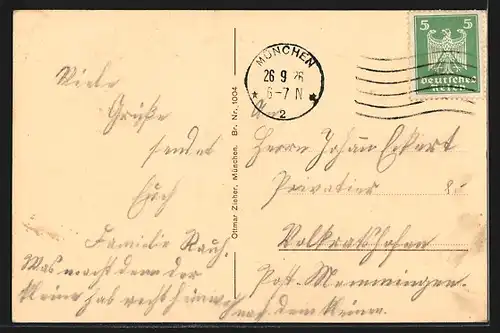 Viele
Grüße
sendet
Euch
Familie Rauh.
Was macht denn der
kleine hab recht heimweh
nach dem kleinen.
Ottmar Zieher, München. Br. Nr. 1004
MÜNCHEN
26 9 26
6-7 N
* 2 *
5 5
Deutsches
Reich
An
Herrn Johann Eckert
Privatier
Volkratshofen
Post. Memmingen.